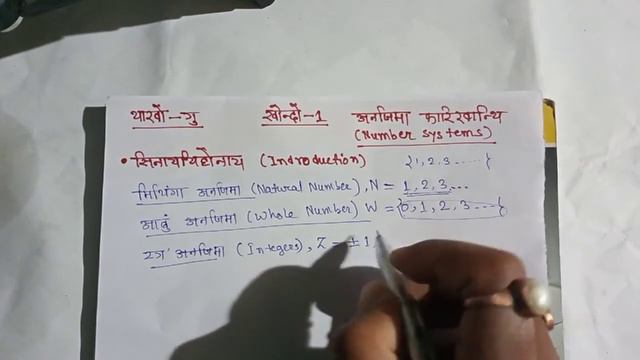 थाखो-गु खोन्दो-1 अनजिमा कारिखान्थि
(Number systems)
• सिनायथिहोनाय (Indroduction) {1, 2, 3 ......}
मिथिंगा अनजिमा (Natural Number), N = 1, 2, 3, ...
आबुं अनजिमा (Whole Number) W = {0, 1, 2, 3 ....}
अनजिमा (Integers), Z = ±1